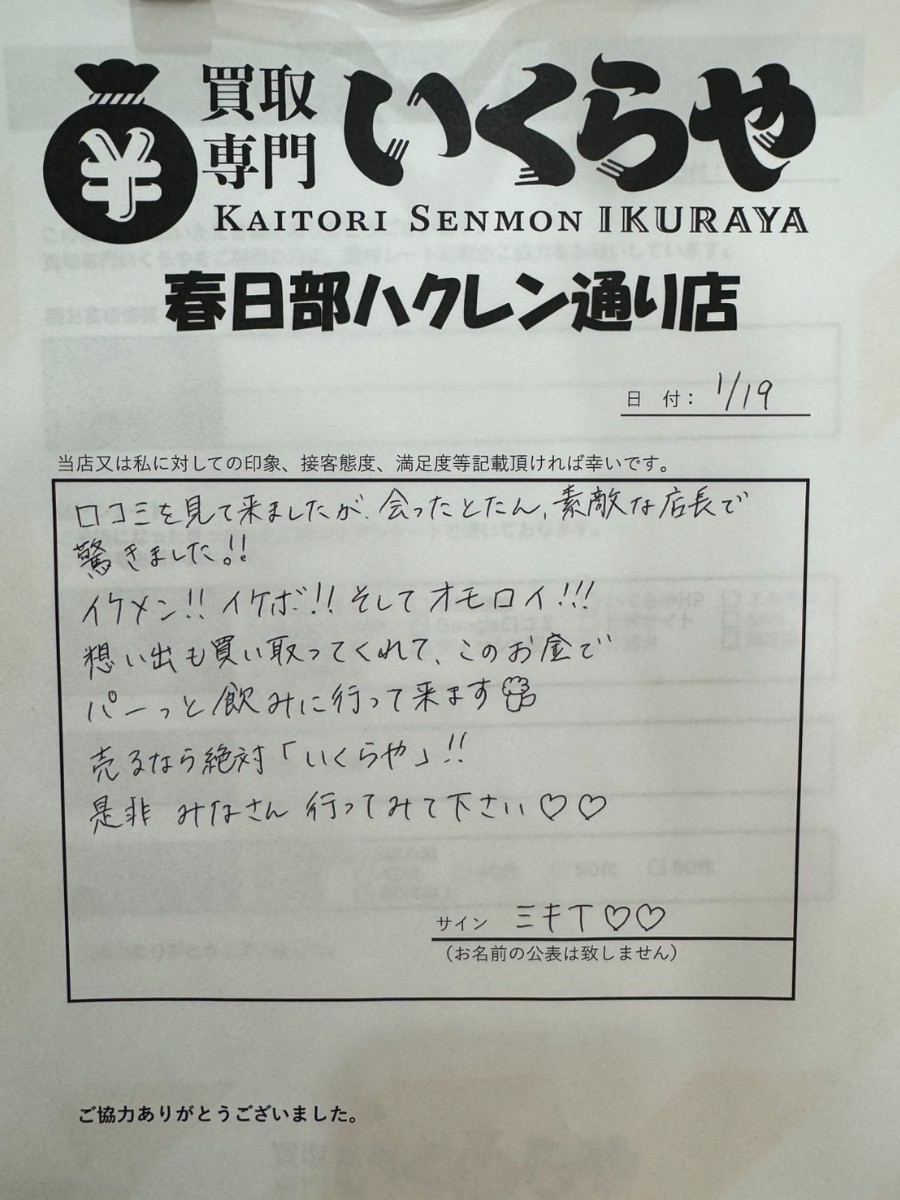 買取
専門
いくらや
KAITORI SENMON IKURAYA
春日部ハクレン通り店
日 付： 1/19
当店又は私に対しての印象、接客態度、満足度等記載頂ければ幸いです。
口コミを見て来ましたが、会ったとたん、素敵な店長で
驚きました!!
イケメン!! イケボ!! そして オモロイ!!!
想い出も買い取ってくれて、このお金で
パーっと飲みに行って来ます
売るなら絶対「いくらや」!!
是非 みなさん 行ってみて下さい♡♡
サイン ミキT♡♡
（お名前の公表は致しません）
ご協力ありがとうございました。